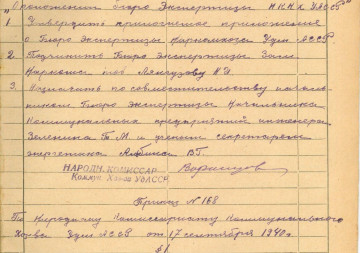 "О положении Бюро Экспертизы НККХ УАССР"
1. Утвердить прилагаемое положение
о Бюро Экспертизы Наркомхоза Удм АССР
2. Подчинить Бюро Экспертизы Зам.
Наркома тов
3. Назначить по совместительству началь-
ником Бюро Экспертизы Начальника
Коммунальных предприятий инженера
Зеленина Т. М и ученым секретарем
энергетика В Г.
НАРОДН. КОМИССАР
Коммун. Хоз-ва УАССР
Приказ № 168
По Народному Комиссариату Коммунального
Хоз-ва Удм АССР от 17 сентября 1940г
§ 1